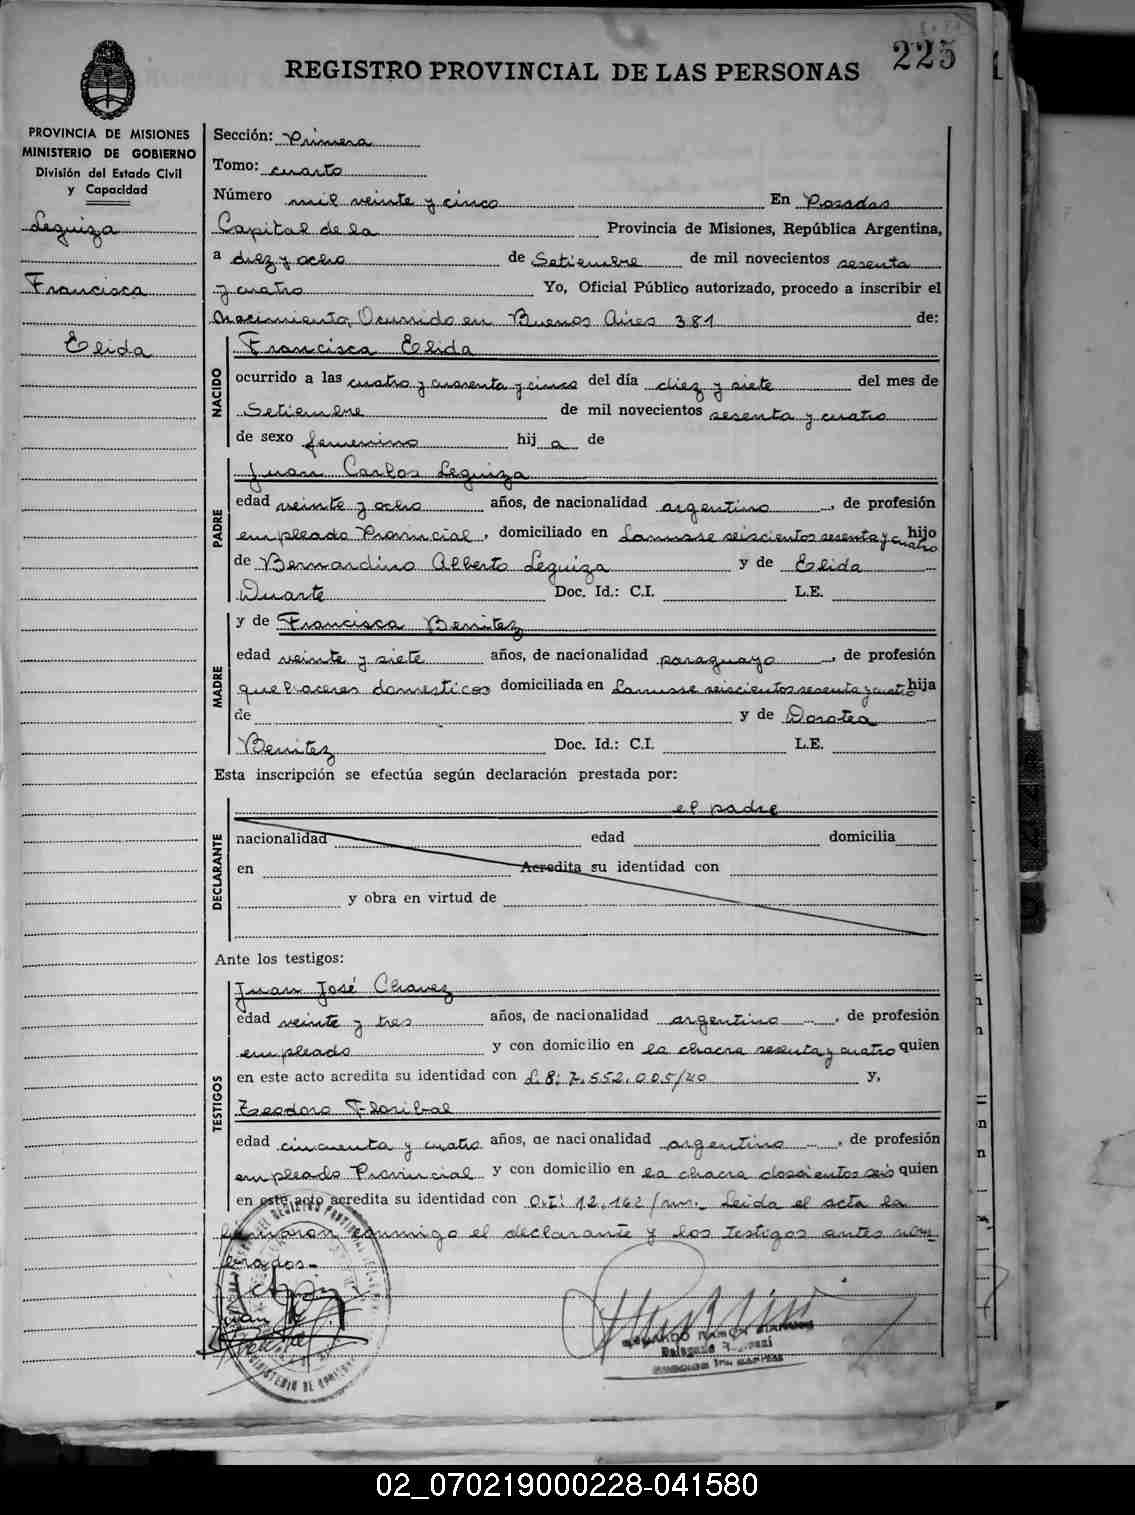 225
REGISTRO PROVINCIAL DE LAS PERSONAS
PROVINCIA DE MISIONES
MINISTERIO DE GOBIERNO
División del Estado Civil
y Capacidad
Leguiza
Francisca
Elida
Sección: Primera
Tomo: cuarto
Número mil veinte y cinco En Posadas
Capital de la Provincia de Misiones, República Argentina,
a diez y ocho de Setiembre de mil novecientos sesenta
y cuatro Yo, Oficial Público autorizado, procedo a inscribir el
nacimiento, Ocurrido en Buenos Aires 381 de:
NACIDO
Francisca Elida
ocurrido a las cuatro y cuarenta y cinco del día diez y siete del mes de
Setiembre de mil novecientos sesenta y cuatro
de sexo femenino hij a de
PADRE
Juan Carlos Leguiza
edad veinte y ocho años, de nacionalidad argentino, de profesión
empleado Provincial, domiciliado en Lanusse seiscientos sesenta y cuatro hijo
de Bernardino Alberto Leguiza y de Elida
Duarte Doc. Id.: C.I. L.E.
MADRE
y de Francisca Benitez
edad veinte y siete años, de nacionalidad paraguayo, de profesión
quehaceres domesticos domiciliada en Lanusse seiscientos sesenta y cuatro hija
de y de Dorotea
Benitez Doc. Id.: C.I. L.E.
Esta inscripción se efectúa según declaración prestada por:
DECLARANTE
el padre
nacionalidad edad domicilia
en Acredita su identidad con
y obra en virtud de
Ante los testigos:
TESTIGOS
Juan José Chavez
edad veinte y tres años, de nacionalidad argentino, de profesión
empleado y con domicilio en la chacra sesenta y cuatro quien
en este acto acredita su identidad con L.8: 7.552.005/40 y,
Teodoro Floribal
edad cincuenta y cuatro años, de nacionalidad argentino, de profesión
empleado Provincial y con domicilio en la chacra doscientos seis quien
en este acto acredita su identidad con C.I: 12.162/ms._ Leida el acta la
firmaron conmigo el declarante y los testigos antes nom_
brados._
Delegado
02_070219000228-041580